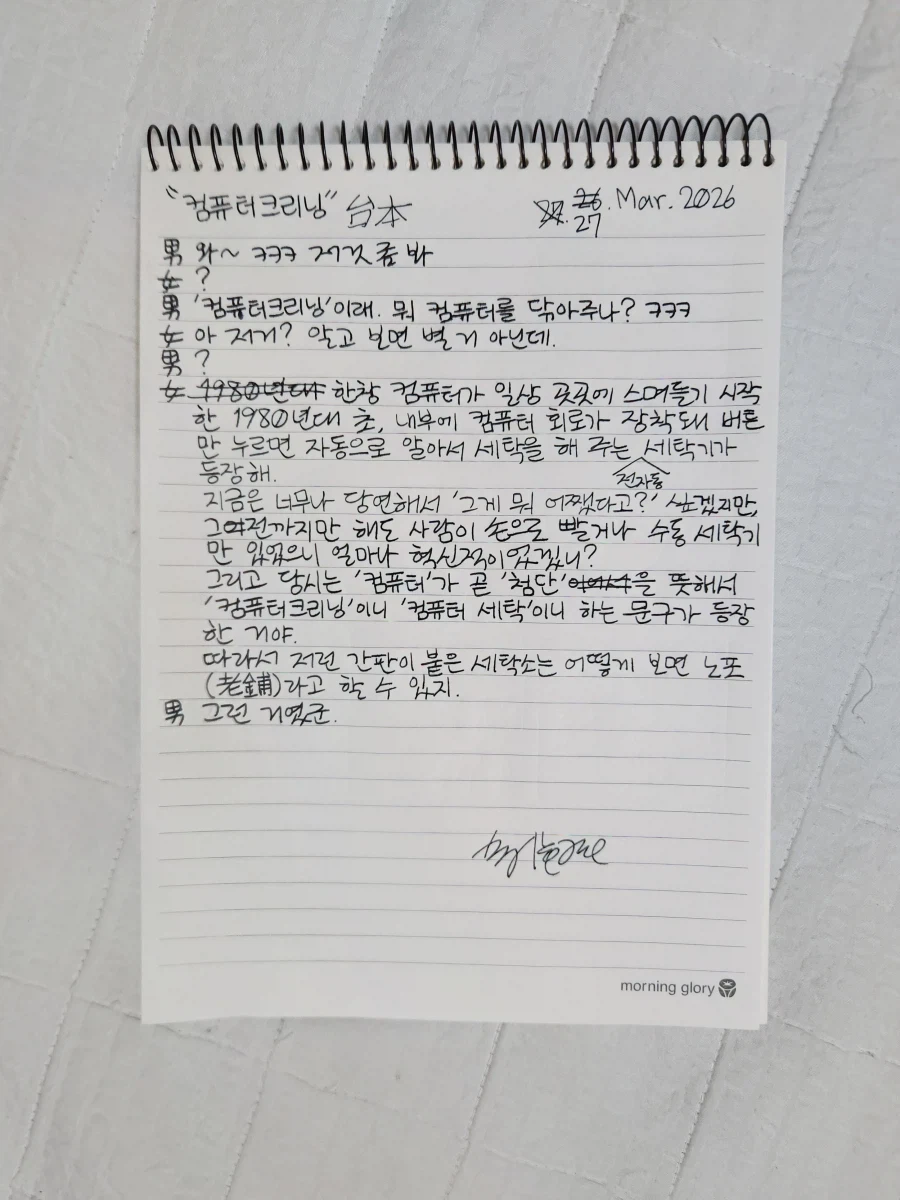 "컴퓨터크리닝" 台本
27. Mar. 2026
男 와~ ㅋㅋㅋ 저것 좀 봐
女 ?
男 '컴퓨터크리닝'이래. 뭐 컴퓨터를 닦아주나? ㅋㅋㅋ
女 아 저거? 알고 보면 별 거 아닌데.
男 ?
女 1980년대 한창 컴퓨터가 일상 곳곳에 스며들기 시작
한 1980년대 초, 내부에 컴퓨터 회로가 장착돼 버튼
만 누르면 자동으로 알아서 세탁을 해 주는 전자동 세탁기가
등장해.
지금은 너무나 당연해서 '그게 뭐 어쨌다고?' 싶겠지만,
그 전까지만 해도 사람이 손으로 빨거나 수동 세탁기
만 있었으니 얼마나 혁신적이었겠니?
그리고 당시는 '컴퓨터'가 곧 '첨단'을 뜻해서
'컴퓨터크리닝'이니 '컴퓨터 세탁'이니 하는 문구가 등장
한 거야.
따라서 저런 간판이 붙은 세탁소는 어떻게 보면 노포
(老鋪)라고 할 수 있지.
男 그런 거였군.
morning glory